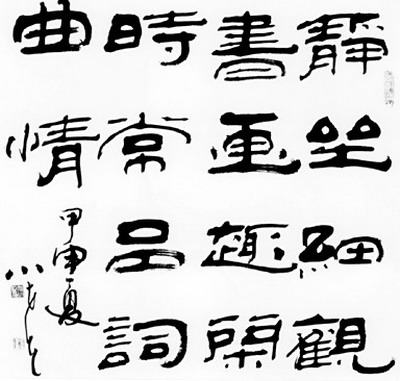 靜坐細觀
書畫趣閑
時常品詞
曲情
甲申夏